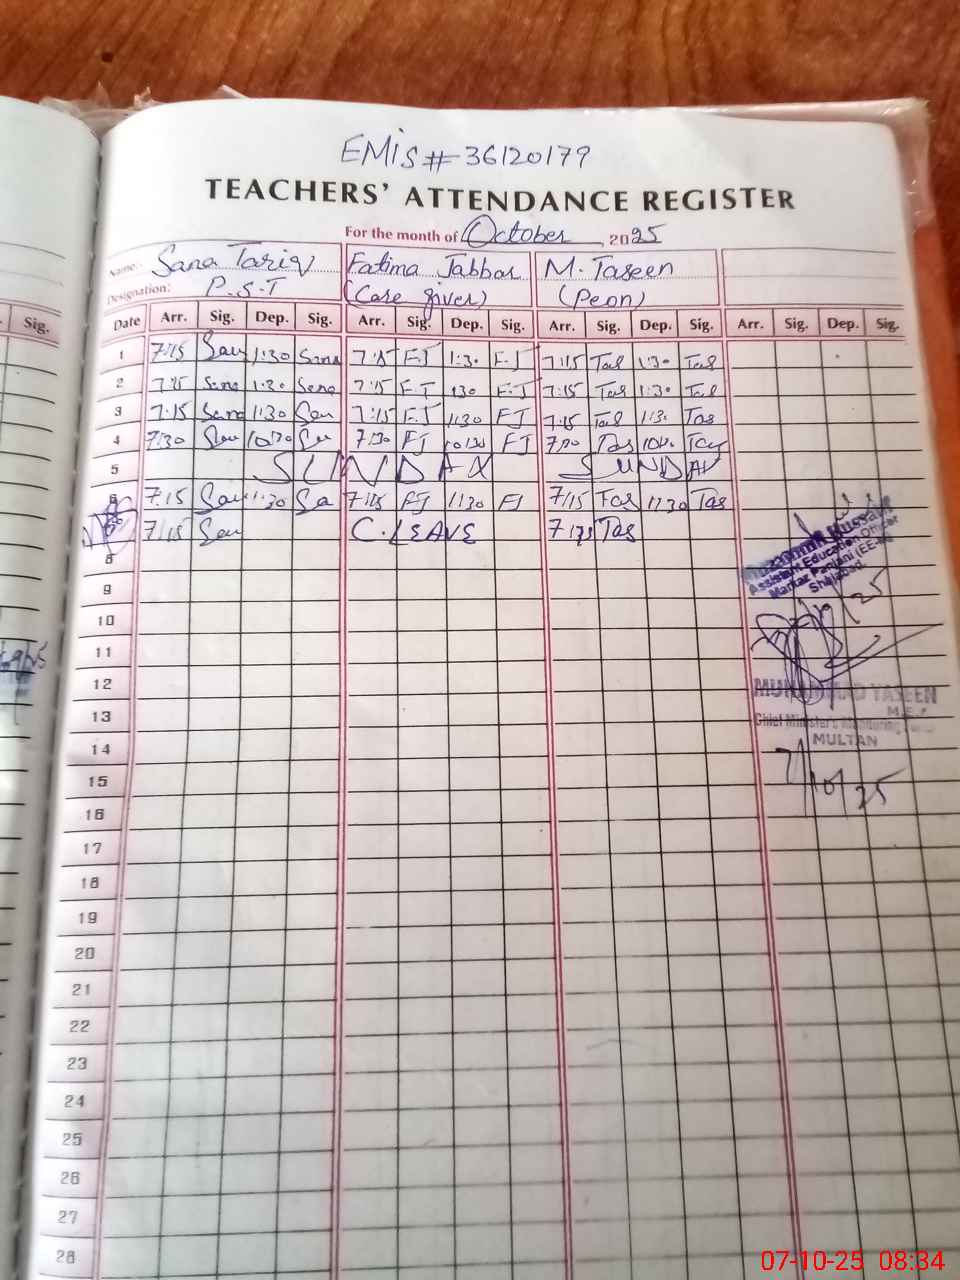 EMIS # 36120179
TEACHERS' ATTENDANCE REGISTER
For the month of October, 2025
Name: Sana Tariq Fatima Jabbar M. Taseen
Designation: P.S.T (Care giver) (Peon)
Sig.
Date Arr. Sig. Dep. Sig. Arr. Sig. Dep. Sig. Arr. Sig. Dep. Sig. Arr. Sig. Dep. Sig.
1 7:15 San 1:30 Sana 7:15 F.J 1:30 F.J 7:15 Tas 1:30 Tas
2 7:15 Sana 1:30 Sana 7:15 F.J 1:30 F.J 7:15 Tas 1:30 Tas
3 7:15 Sana 1:30 San 7:15 F.J 1:30 FJ 7:15 Tas 1:30 Tas
4 7:30 San 10:30 7:30 FJ 10:30 FJ 7:30 Tas Tas
5 SUNDAY SUNDAY
6 7:15 San 1:30 Sa 7:15 FJ 1:30 FJ 7:15 Tas 1:30 Tas
7:15 San C.LEAVE Tas
8
9
10
11
12
13
14
15
16
17
18
19
20
21
22
23
24
25
26
27
28
Hussain
Assistant Education Officer
Markaz
Shujabad.
MUHAMMAD YASEEN
Chief Minister's Monitoring
MULTAN
7/10/25
07-10-25 08:34